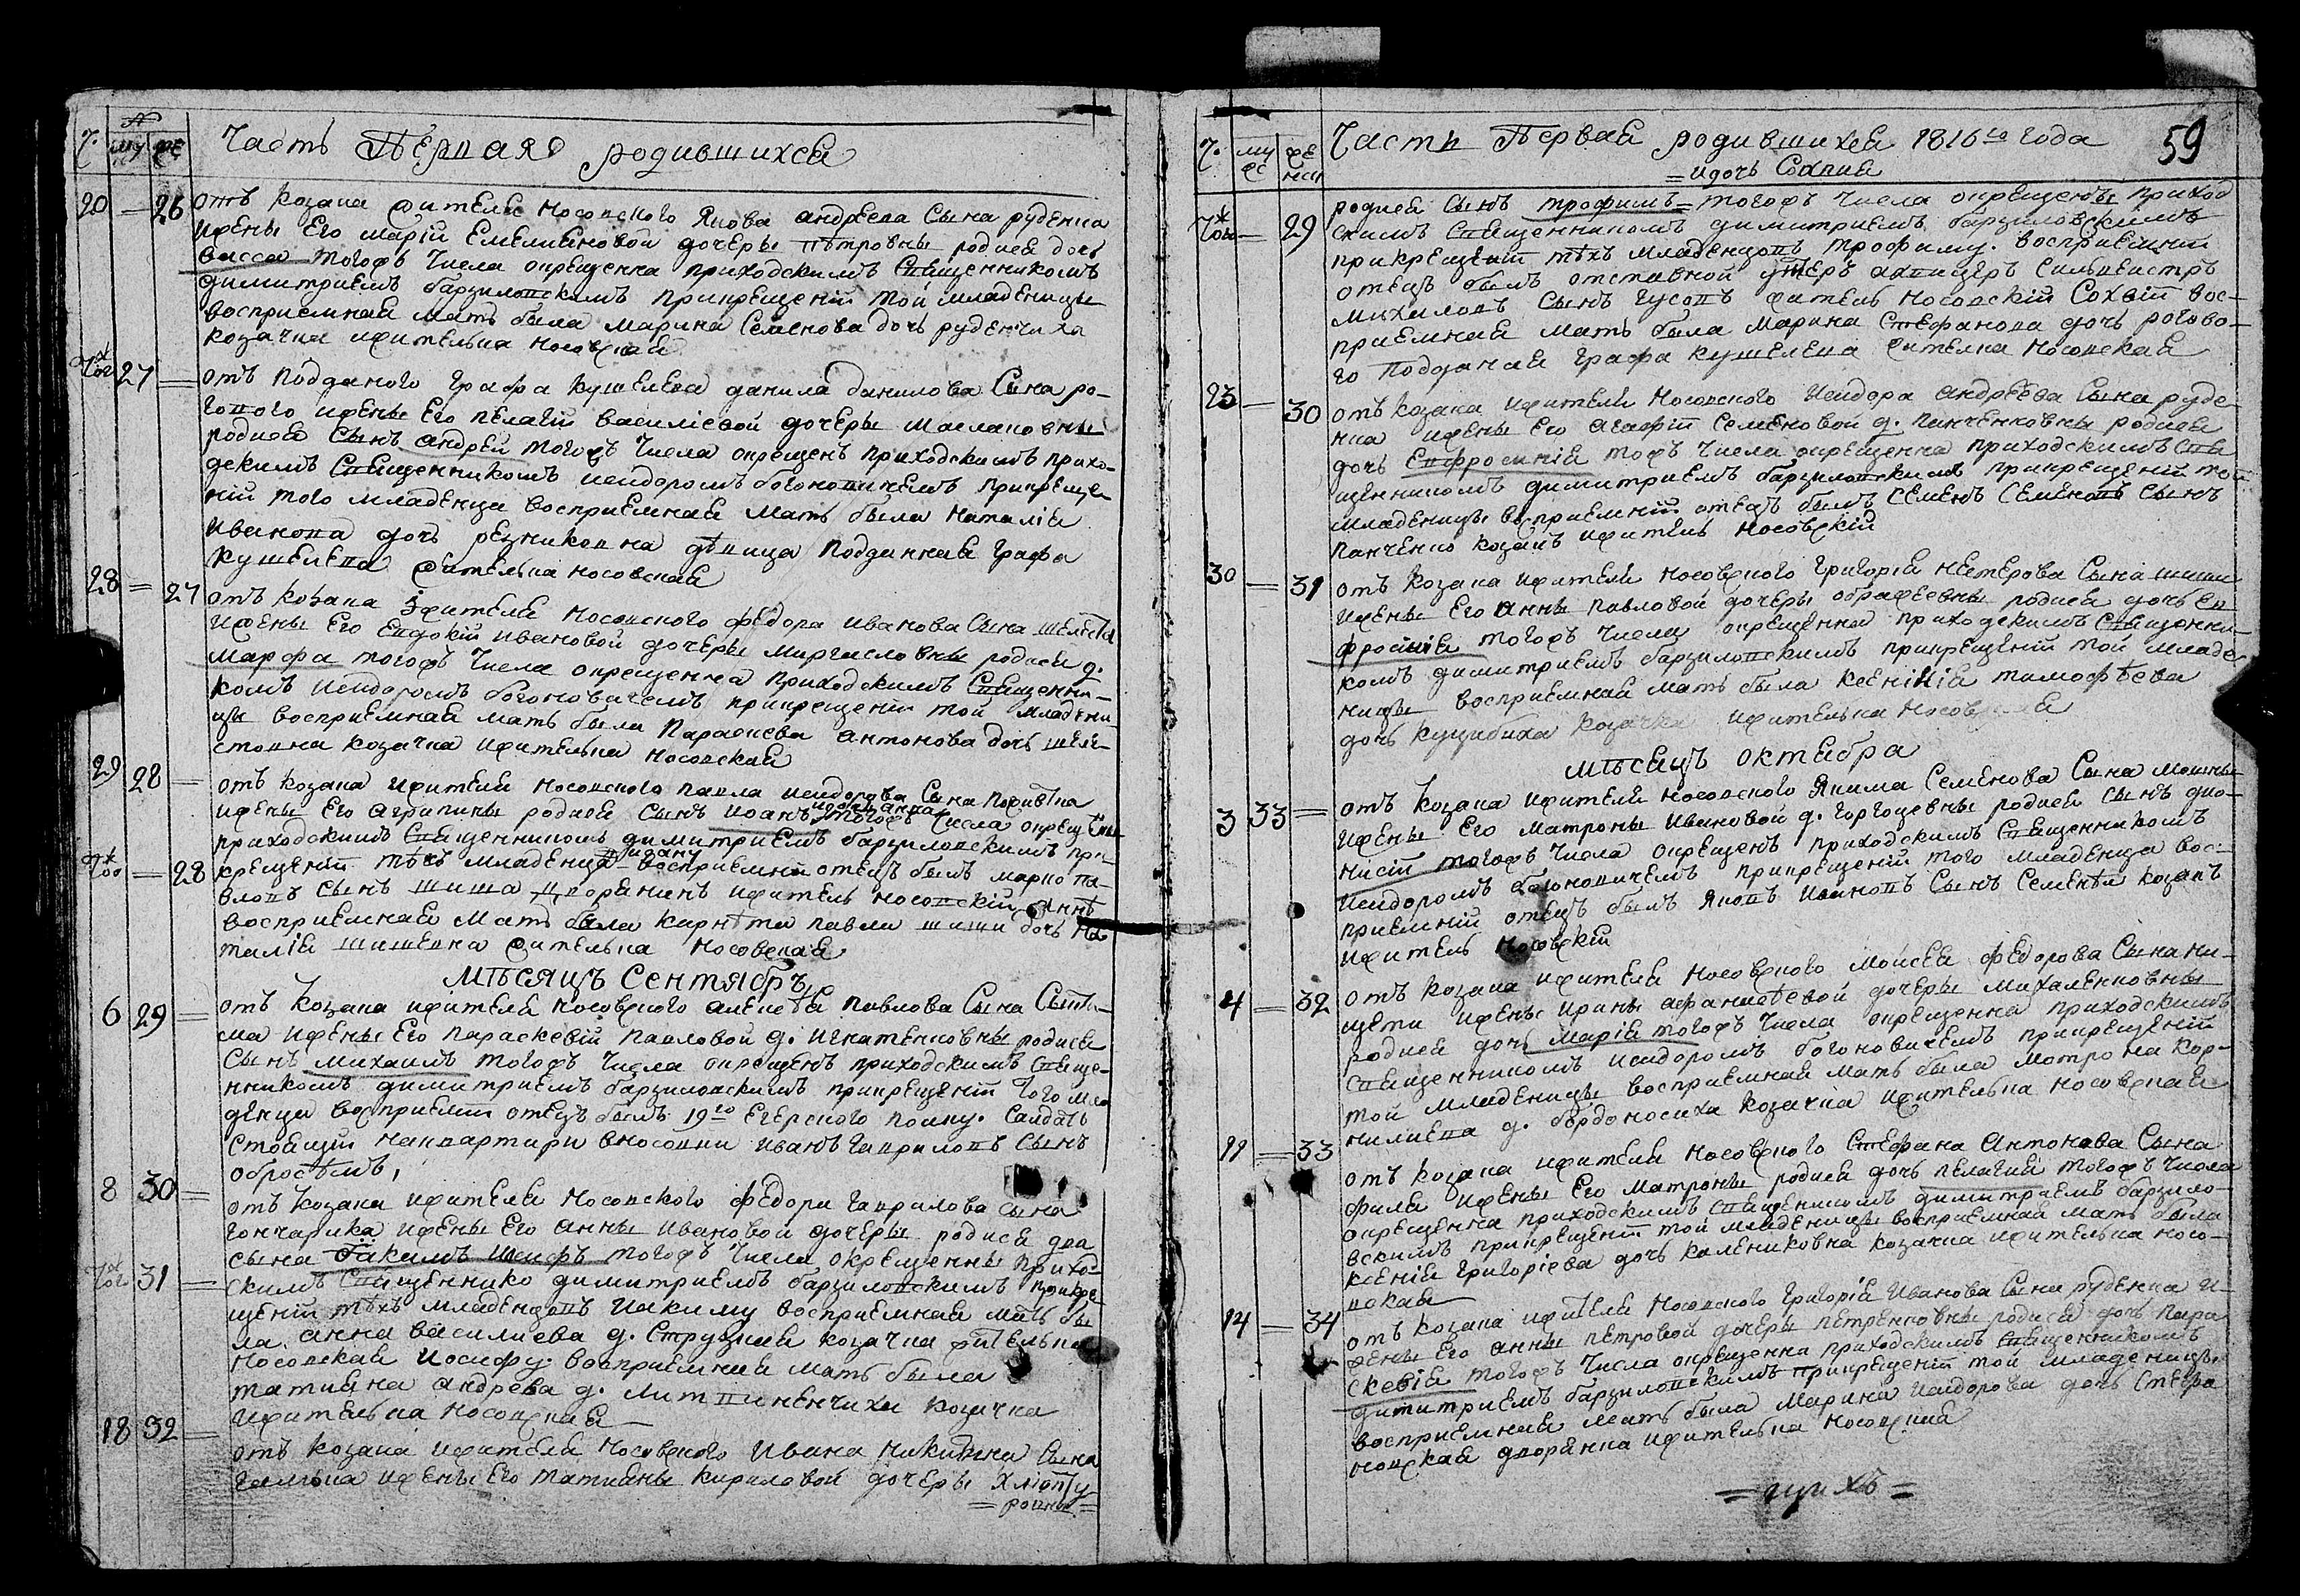 Часть Перпая родившихся
Ч. му фе
20 26 отъ козака жителя Носовского Якова андреева Сына руденка
ижены Его марiи Емелияновой дочеры пѣтровны родися дочь
васса тогожъ Числа окрещенна приходскимъ Священникомъ
димитриемъ барзиловскимъ прикрещенiи той младеницы
восприемная мать была марина Семенова дочь руденчиха
козачка ижителка носовская
27 отъ подданого графа кушелева данила данилова Сына ро-
гового ижены Его пелагiи василiевой дочеры маслаковны
родися Сынъ андрей тогожъ Числа окрещенъ приходскимъ прихо-
дскимъ Священникомъ исидоромъ богоновичемъ прикреще
нiи того младенца восприемная мать была наталiя
иванова дочь резниковна дѣвица подданная графа
кушелева жителка носовская
28 27 отъ козака ижителя носовского федора иванова Сына шелеста
ижены Его Евдокiи ивановой дочеры родися д.
марфа тогожъ Числа окрещенна приходскимъ Священни-
комъ исидоромъ богоновичемъ прикрещенiи той младени-
цы восприемная мать была Параскева антонова дочь шеле-
стовна козачка ижителка носовская
29 28 отъ козака ижителя носовского павла исидорова Сына
ижены Его агрипины родися Сынъ иоанъ идочь анна тогожъ Числа окрещены
приходскимъ Священникомъ димитриемъ барзиловскимъ при-
28 крещенiи тѣхъ младенца иоану восприемнiй отецъ былъ марко па-
вловъ Сынъ шиша дворянинъ ижитель носовскiй аннѣ
восприемная мать была павла шиши дочь на
талiя шишевна жителка носовская
мѣсяцъ Сентябръ
6 29 отъ козака ижителя носовского алексѣя павлова Сына
ма ижены Его параскевiи павловой д. игнатенковны родися
Сынъ михаилъ тогожъ Числа окрещенъ приходскимъ Свяще-
нникомъ димитриемъ барзиловскимъ прикрещенiи того мла
денца восприемнiй отецъ былъ 19го Егерского полку Салдатъ
Стоящiй наквартири вносовки иванъ гавриловъ Сынъ
8 30 отъ козака ижителя носовского федора гаврилова Сына
гончарика ижены Его анны ивановой дочеры родися два
сына иакимъ иосифъ тогожъ Числа окрещенны прихо-
31 скимъ Священнико димитриемъ барзиловскимъ прикре
щенiи тѣхъ младенцовъ иакиму восприемная мать бы
ла анна василиева д. козачка жителка
носовская иосифу восприемная мать была
татияна андреева д. козачка
ижителка носовская
18 32 отъ козака ижителя носовского ивана никитина Сына
ижены Его татияны кириловой дочеры
Часть Первая родившихся 1816го года 59
Ч. му фе
= идочь Софiя
родися Сынъ трофимъ = тогожъ Числа окрещены приход
29 скимъ Священникомъ димитриемъ барзиловскимъ
прикрещенiи тѣхъ младенцовъ трофиму восприемнiй
отецъ былъ отставной унтеръ афицеръ Силвестръ
михаловъ Сынъ гусовъ житель носовскiй Софiи вос-
приемная мать была марина Стефанова дочь рогово-
го подданая графа кушелева жителка носовская
23 30 отъ козака ижителя носовского исидора андреева Сына руде
нка ижены Его агафiи Семеновой д. панченковны родися
дочь Евфросинiя тожъ Числа окрещенна приходскимъ Свя
щенникомъ димитриемъ барзиловскимъ прикрещенiи той
младеницы восприемнiй отецъ былъ Семенъ Семеновъ Сынъ
панченко козакъ ижитель носовскiй
30 31 отъ козака ижителя носовского григорiя нестерова Сына шиши
ижены Его анны павловой дочеры родися дочь Ев
фросинiя тогожъ Числа окрещенна приходскимъ Священни-
комъ димитриемъ барзиловскимъ прикрещенiи той младе
ницы восприемная мать была ксенiя тимофѣева
дочь куцибиха козачка ижителка носовская
мѣсяцъ октября
3 33 отъ козака ижителя носовского якима Семенова Сына
ижены Его матроны ивановой д. родися Сынъ дио-
нисiй тогожъ Числа окрещенъ приходскимъ Священникомъ
исидоромъ богоновичемъ прикрещенiи того младенца вос-
приемнiй отецъ былъ яковъ ивановъ Сынъ козакъ
ижитель носовскiй
4 32 отъ козака ижителя носовского моисея федорова Сына ни-
цети ижены ирины афанасѣевой дочеры михаленковны
родися дочь марiя тогожъ Числа окрещенна приходскимъ
Священникомъ исидоромъ богоновичемъ прикрещенiи
той младеницы восприемная мать была мотрона кор-
нилиева д. бордоносиха козачка ижителка носовская
11 33 отъ козака ижителя носовского Стефана антонова Сына
фила ижены Его матроны родися дочь пелагия тогожъ Числа
окрещенна приходскимъ Священникомъ димитриемъ барзило
вскимъ прикрещенiи той младеницы восприемная мать была
ксенiя григорiева дочь калениковна козачка ижителка носо-
вская
14 34 отъ козака ижителя носовского григорiя иванова Сына руденка и-
жены Его анны петровой дочеры петренковны родися дочь пара
скевiя тогожъ Числа окрещенна приходскимъ Священникомъ
димитриемъ барзиловскимъ прикрещенiи той младеницы
восприемная мать была марина исидорова дочь Стефа
новская дворянка ижителка носовская